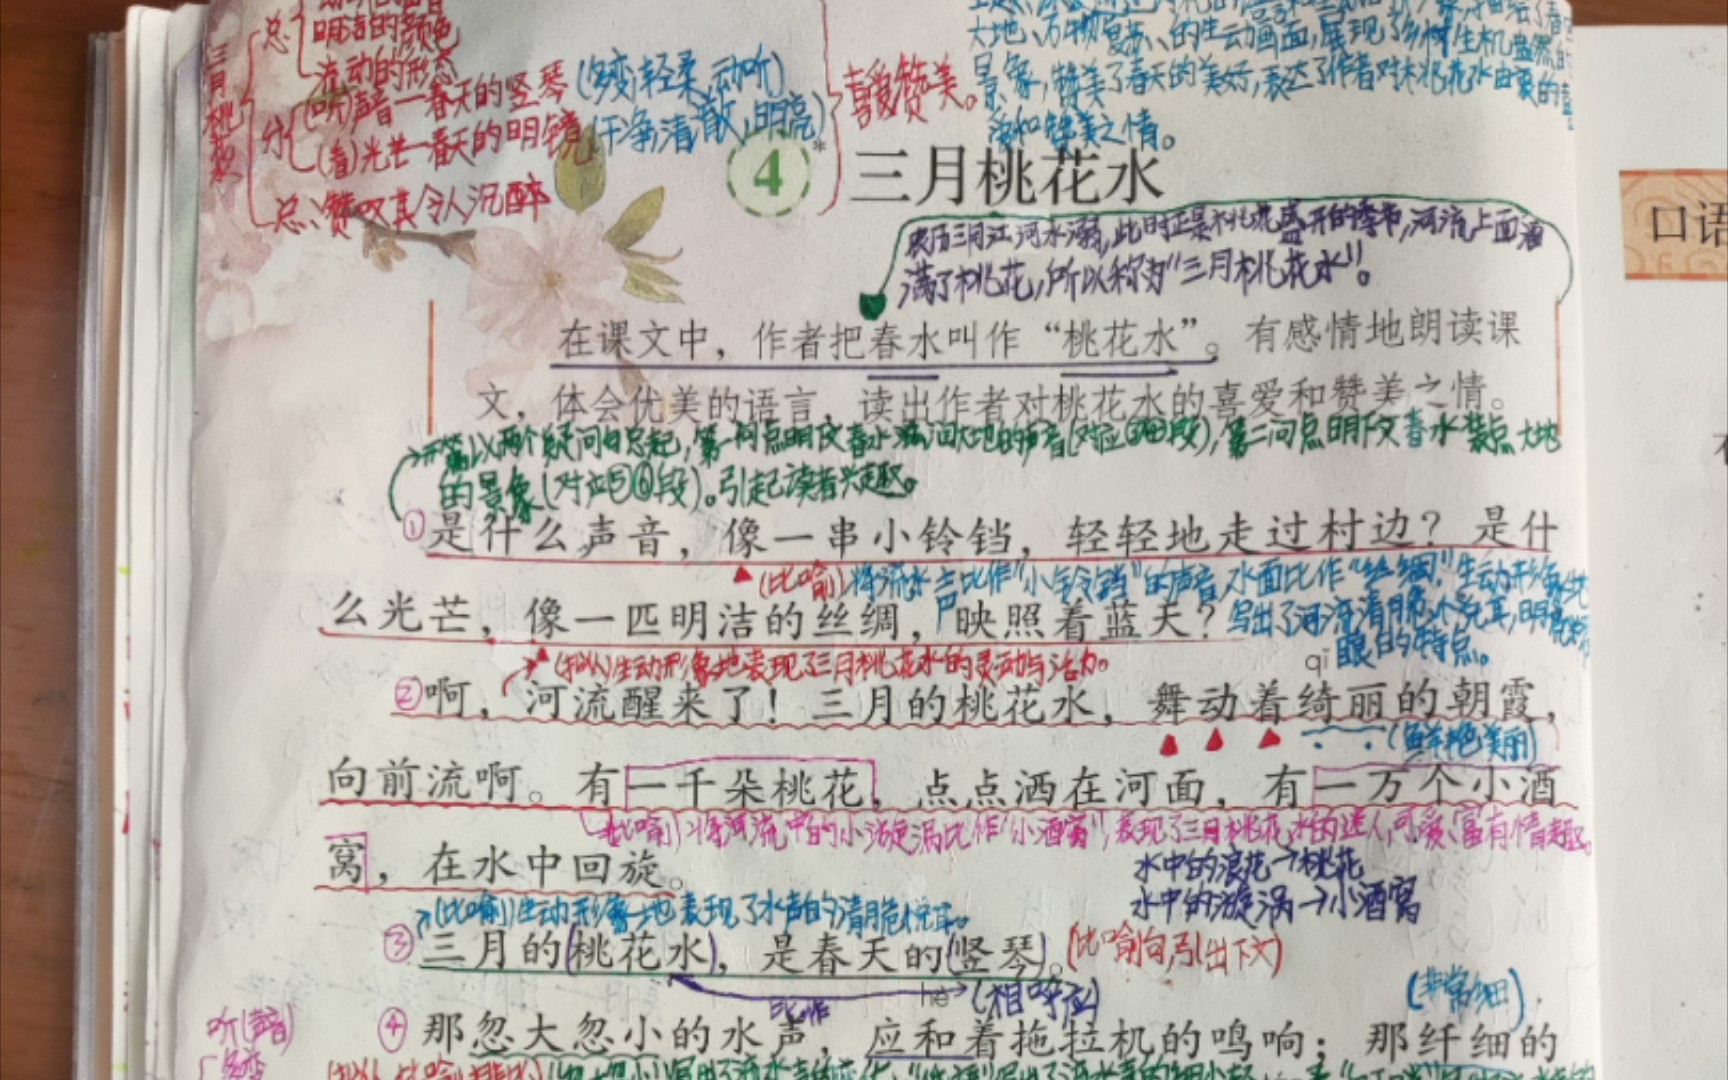 总
明洁的颜色
流动的形态
三月桃花水
分
(听)声音—春天的竖琴(多变,轻柔,动听)
(看)光芒—春天的明镜(干净,清澈,明亮)
总:赞叹其令人沉醉
喜爱赞美。
大地、万物复苏、的生动画面,展现了乡村生机盎然的
景象,赞美了春天的美好,表达了作者对桃花水由衷的喜
爱和赞美之情。
4* 三月桃花水
农历三月江河水溺,此时正是桃花盛开的季节,河流上面洒
满了桃花,所以称为“三月桃花水”。
在课文中，作者把春水叫作“桃花水”。有感情地朗读课
文，体会优美的语言，读出作者对桃花水的喜爱和赞美之情。
开篇以两个疑问句总起,第一问点明下文春水流动大地的声音(对应③④段),第二问点明下文春水装点大地
的景象(对应⑤⑥段)。引起读者兴趣。
①是什么声音，像一串小铃铛，轻轻地走过村边？是什
(比喻)将流水声比作“小铃铛”的声音,水面比作“丝绸”,生动形象地
么光芒，像一匹明洁的丝绸，映照着蓝天？
写出了河流清脆悦耳,明亮
眼的特点。
(拟人)生动形象地表现了三月桃花水的灵动与活力。
qǐ
②啊，河流醒来了！三月的桃花水，舞动着绮丽的朝霞，
(鲜艳美丽)
向前流啊。有一千朵桃花，点点洒在河面，有一万个小酒
(比喻)将河流中的小漩涡比作“小酒窝”,表现了三月桃花水的迷人,可爱、富有情趣。
窝，在水中回旋。
水中的浪花→桃花
水中的漩涡→小酒窝
(比喻)生动形象地表现了水声的清脆悦耳。
③三月的(桃花水)，是春天的(竖琴)。(比喻句,引出下文)
比作
hè
(相呼应)
(非常细)
听(声音)
多变
④那忽大忽小的水声，应和着拖拉机的鸣响；那纤细的